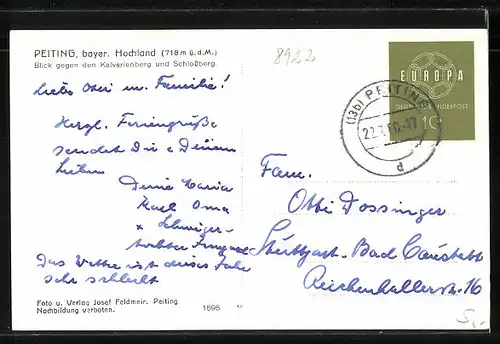 PEITING, bayer. Hochland (718 m ü.d.M.)
Blick gegen den Kalvarienberg und Schloßberg
8922
EUROPA
DEUTSCHE BUNDESPOST
10
(13b) PEITING
d
Liebe Osri u. Familie!
Herzl. Feriengrüße
sendet Dir & Deinen
Lieben
Deine Maria
Karl Oma
+ Schwieger-
tochter
Das Wetter ist dieses Jahr
sehr schlecht
Fam.
Otto Dossinger
Stuttgart-Bad Cannstatt
Reichenhallerstr. 16
Foto u. Verlag Josef Feldmeir, Peiting
Nachbildung verboten.
1696
5,-